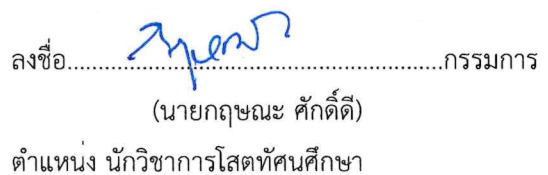 ลงชื่อ..........................................................กรรมการ
(นายกฤษณะ ศักดิ์ดี)
ตำแหน่ง นักวิชาการโสตทัศนศึกษา